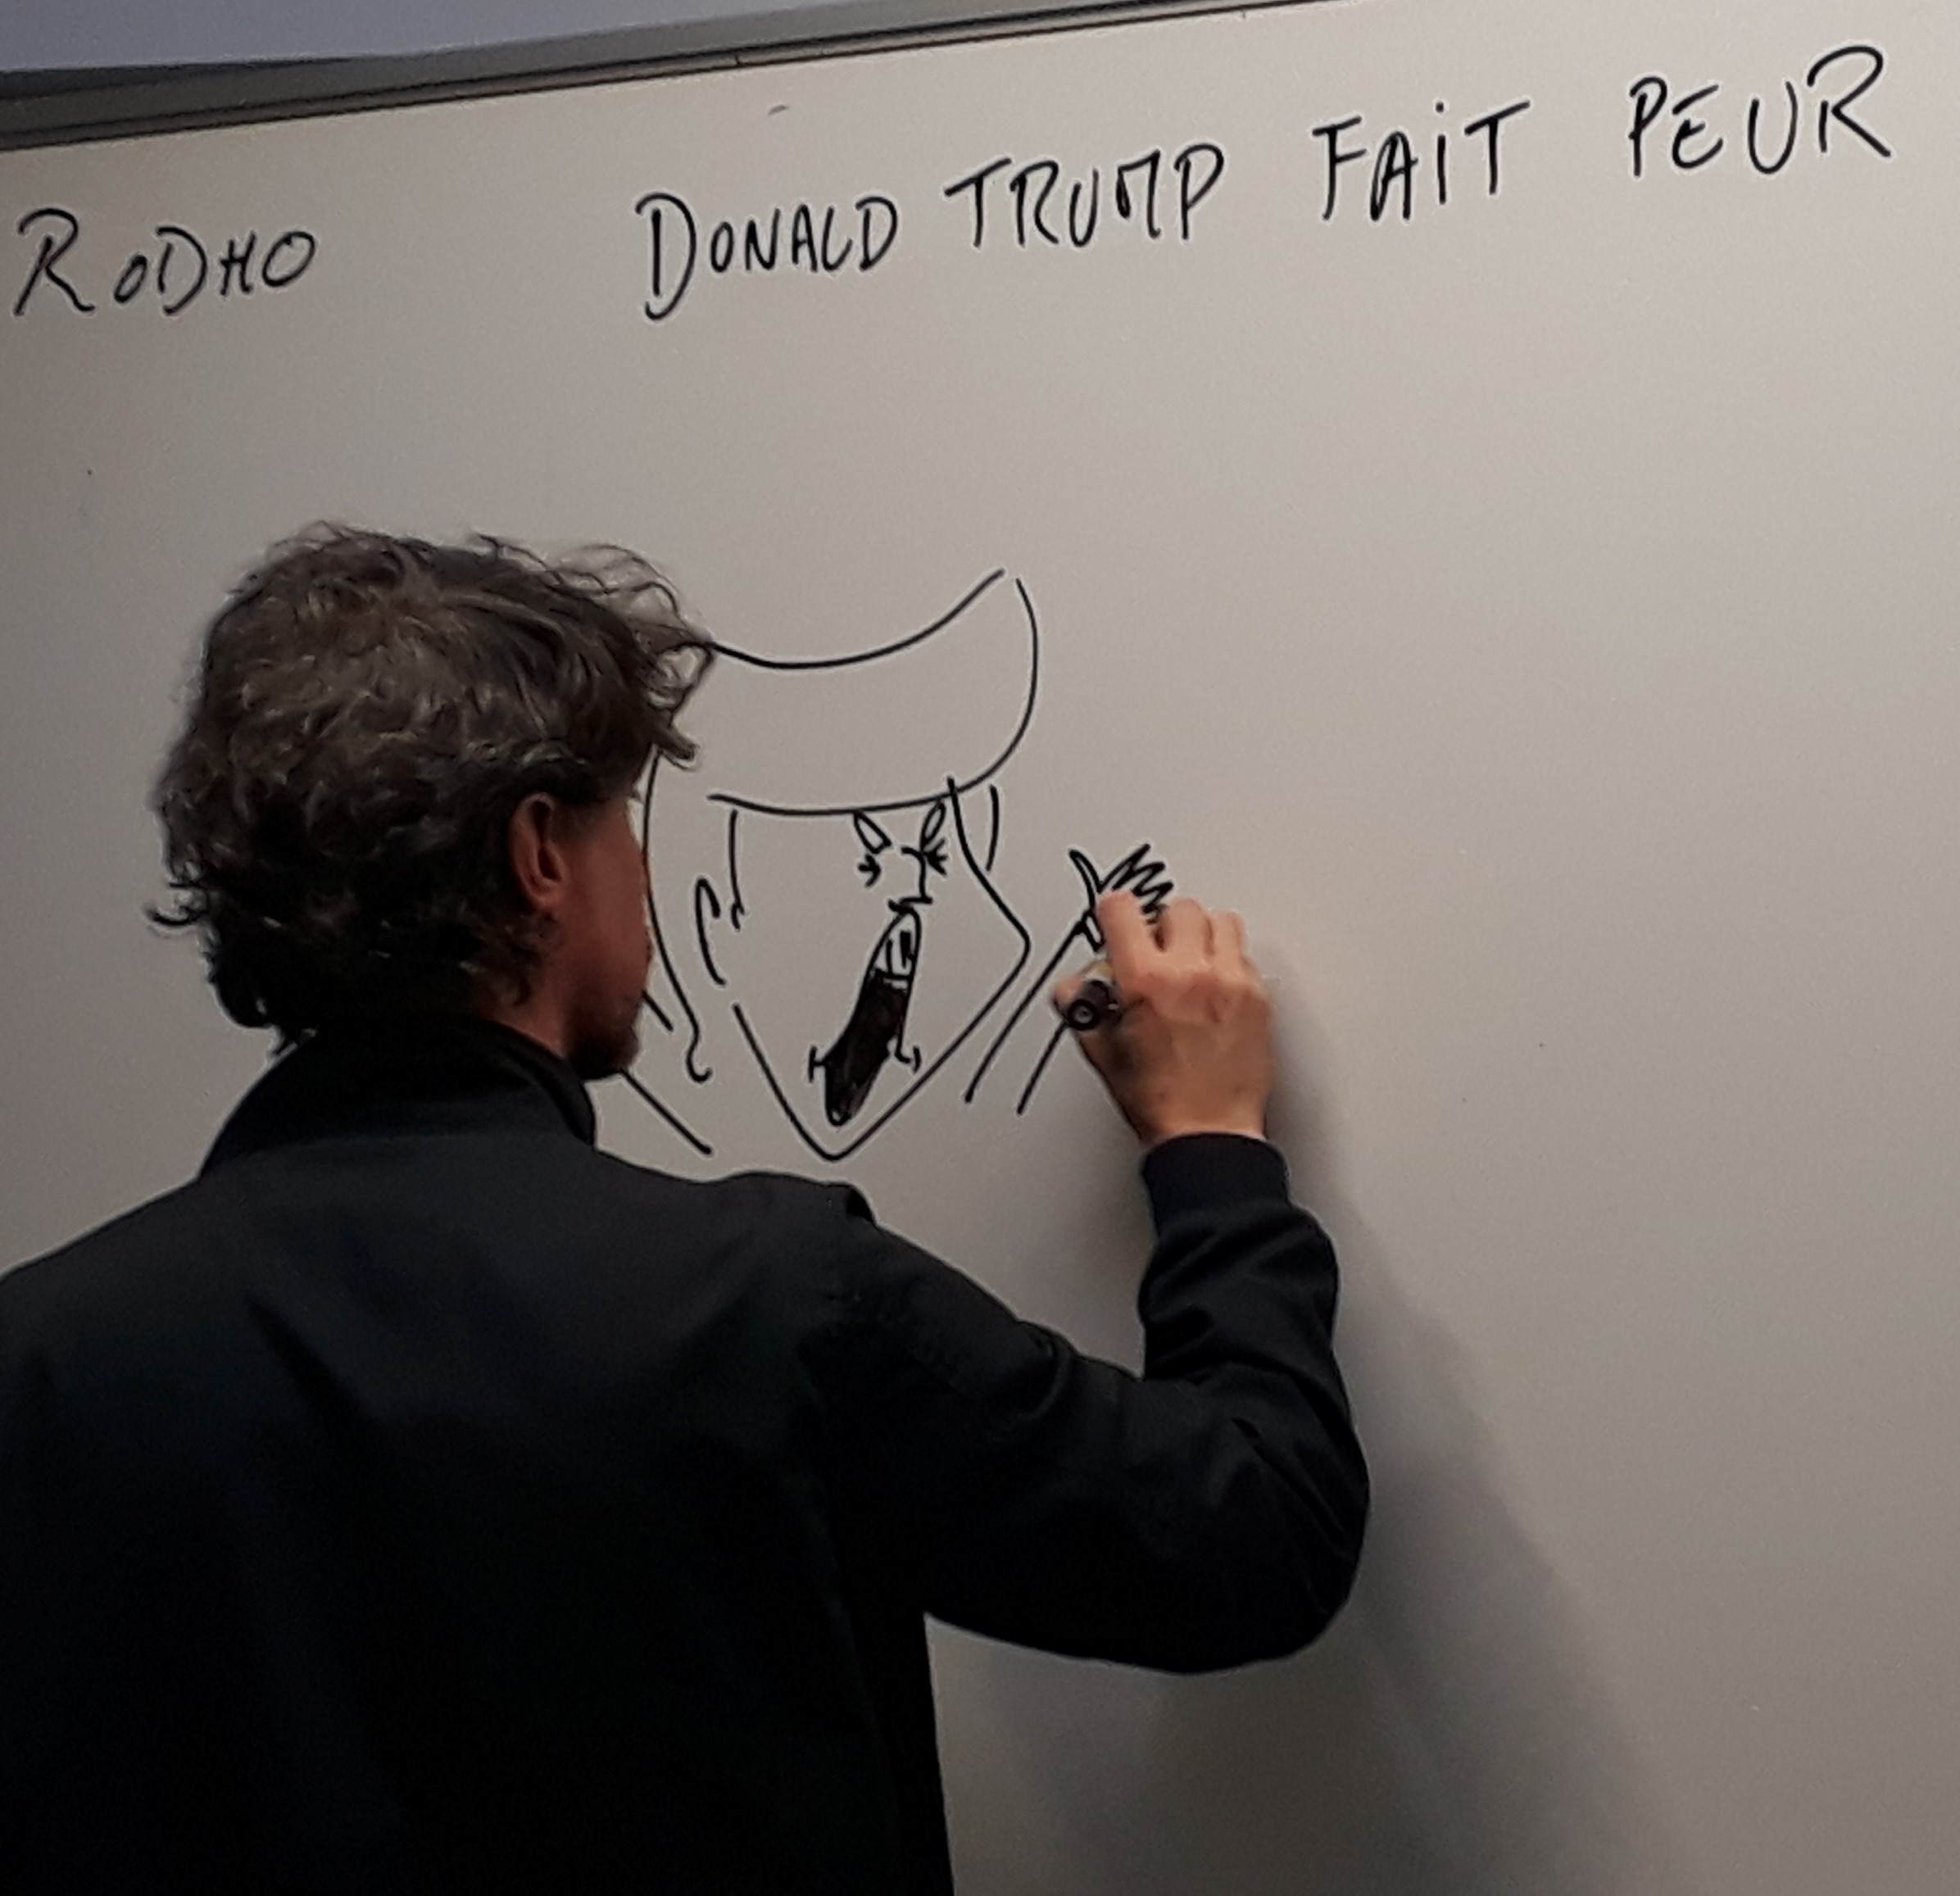 RODHO
DONALD TRUMP FAiT PEUR